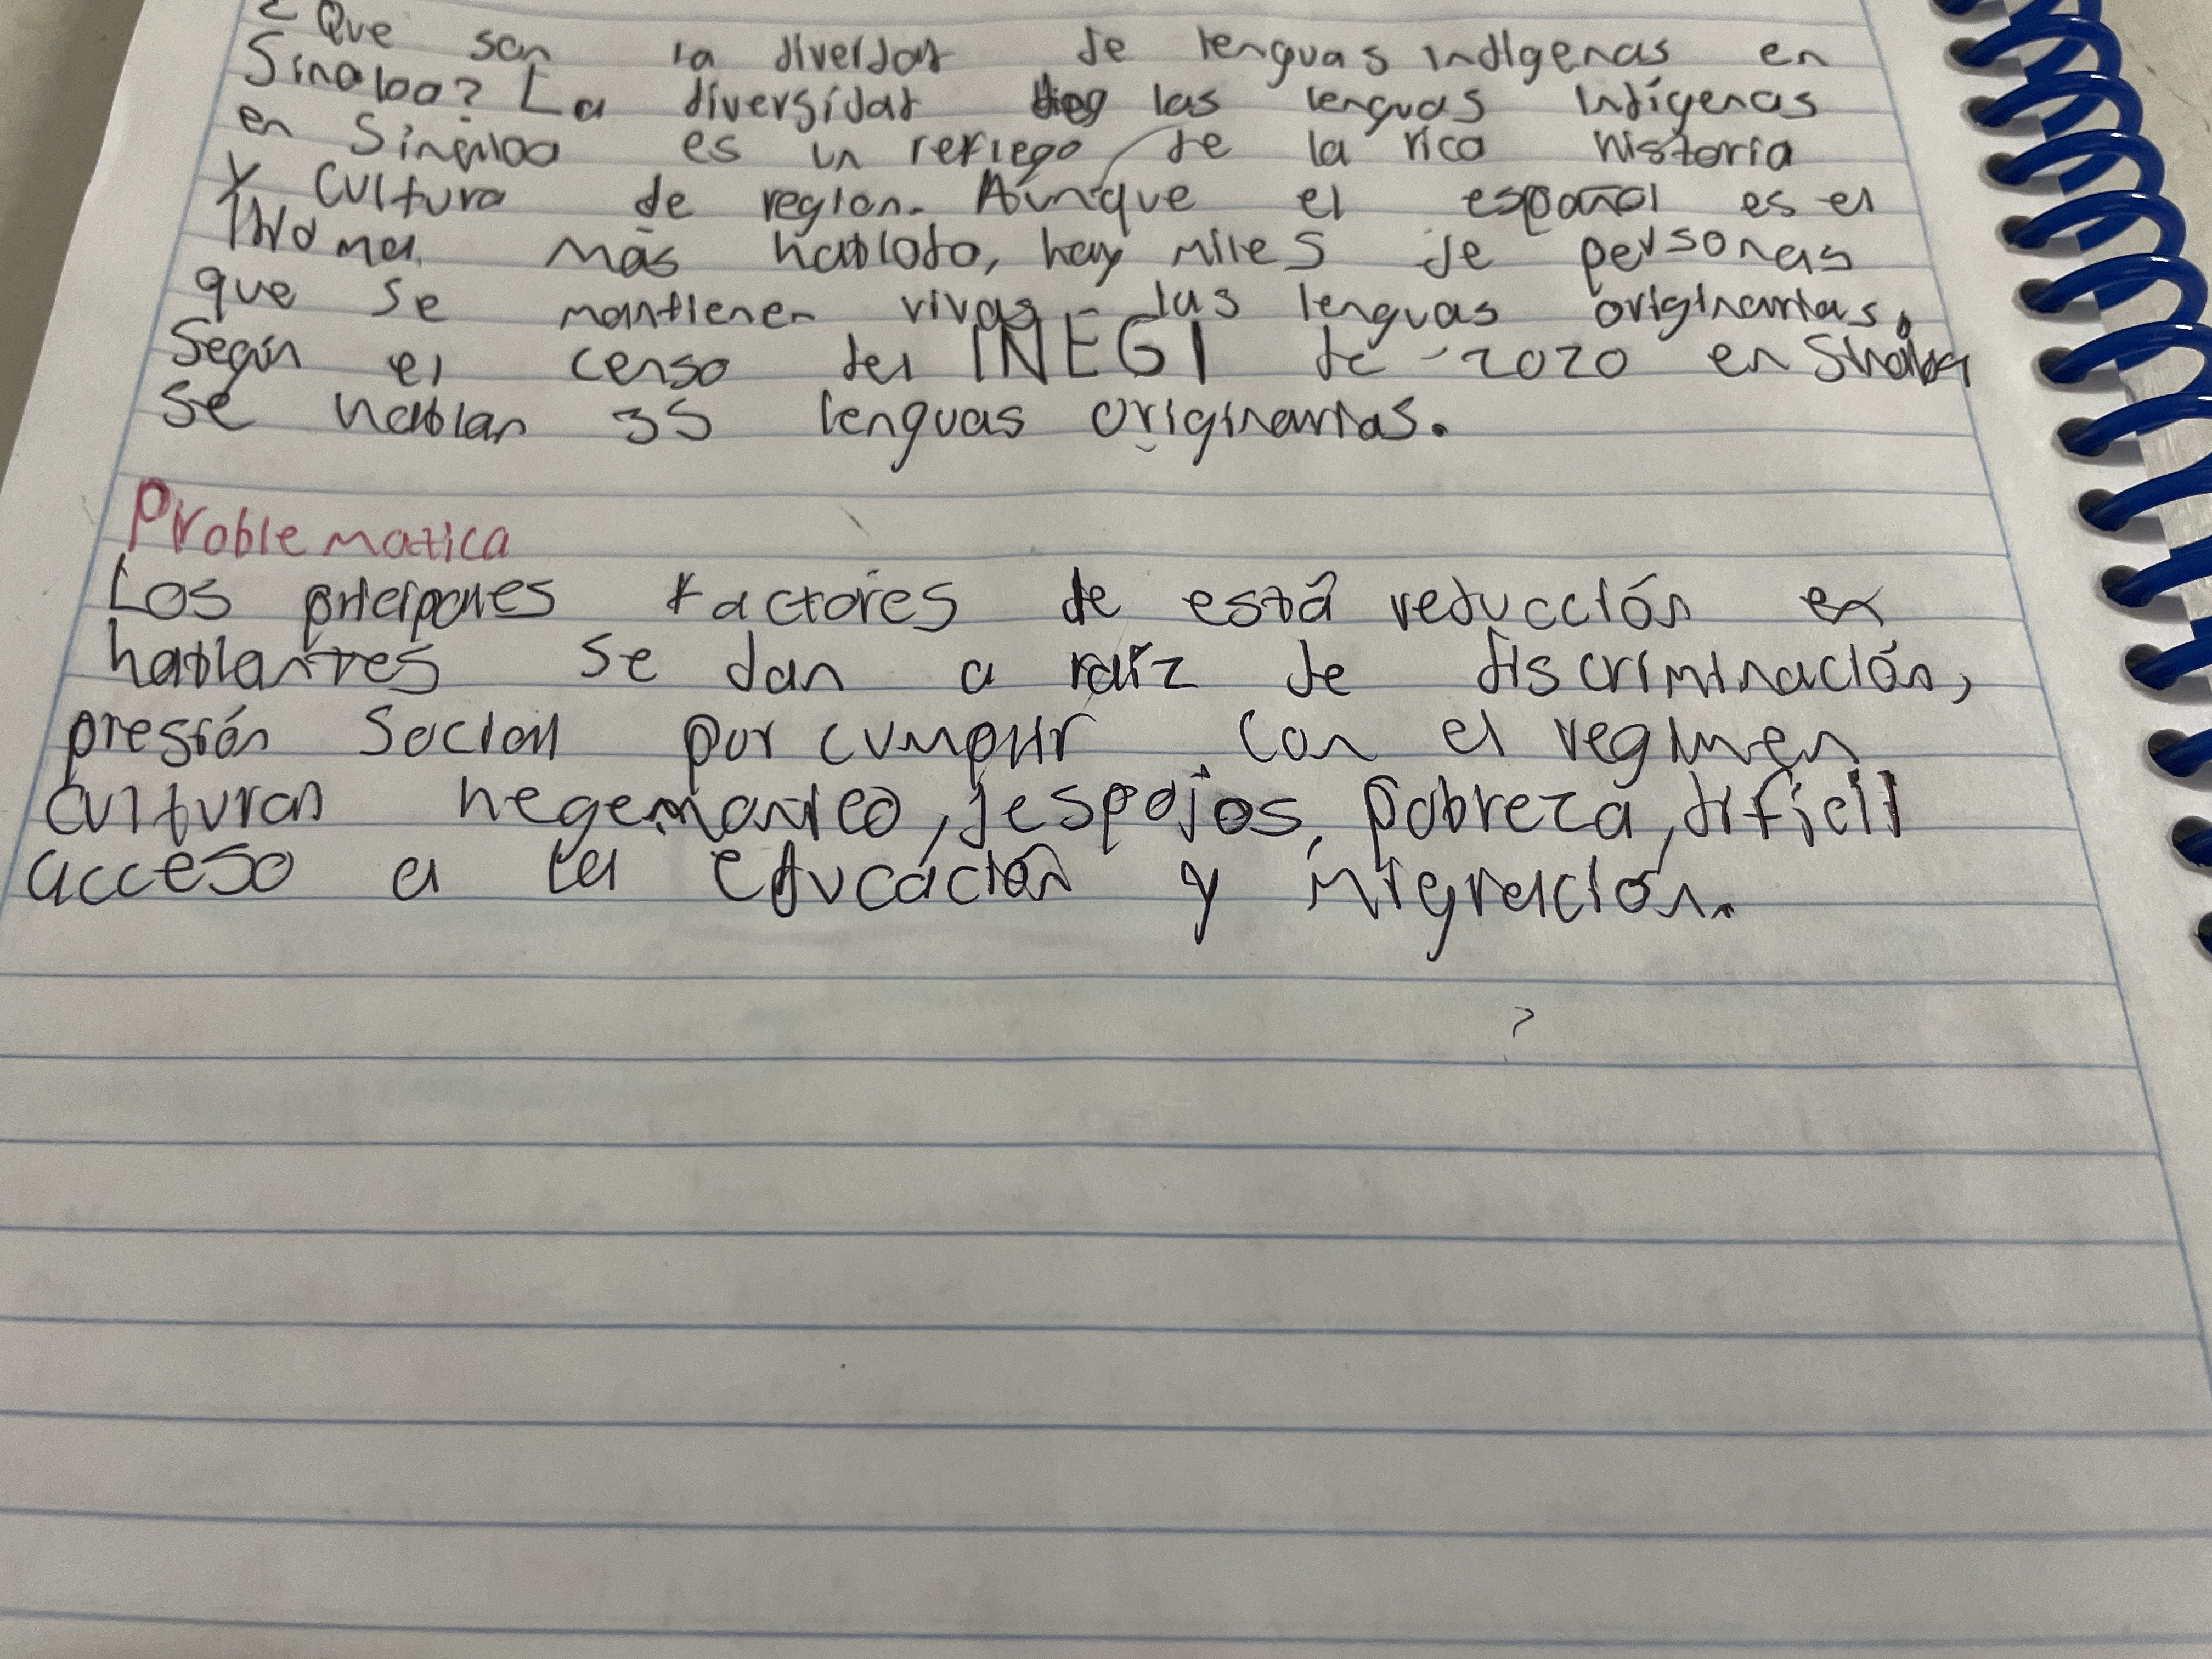 ¿Que son la diverdad de lenguas indígenas en
Sinaloa? La diversidad las lenguas indígenas
en Sinaloa es un reflego de la rica historia
y cultura de region. Aunque el español es el
Idioma más hablado, hay miles de personas
que se mantienen vivas las lenguas originarias.
Según el censo del INEGI de 2020 en Sinaloa
se hablan 35 lenguas originarias.
Problematica
Los principales factores de está reducción en
hablantes se dan a raíz de discriminación,
presión social por cumplir con el regimen
cultural hegemonico, despojos, pobreza, dificil
acceso a la educación y migración.